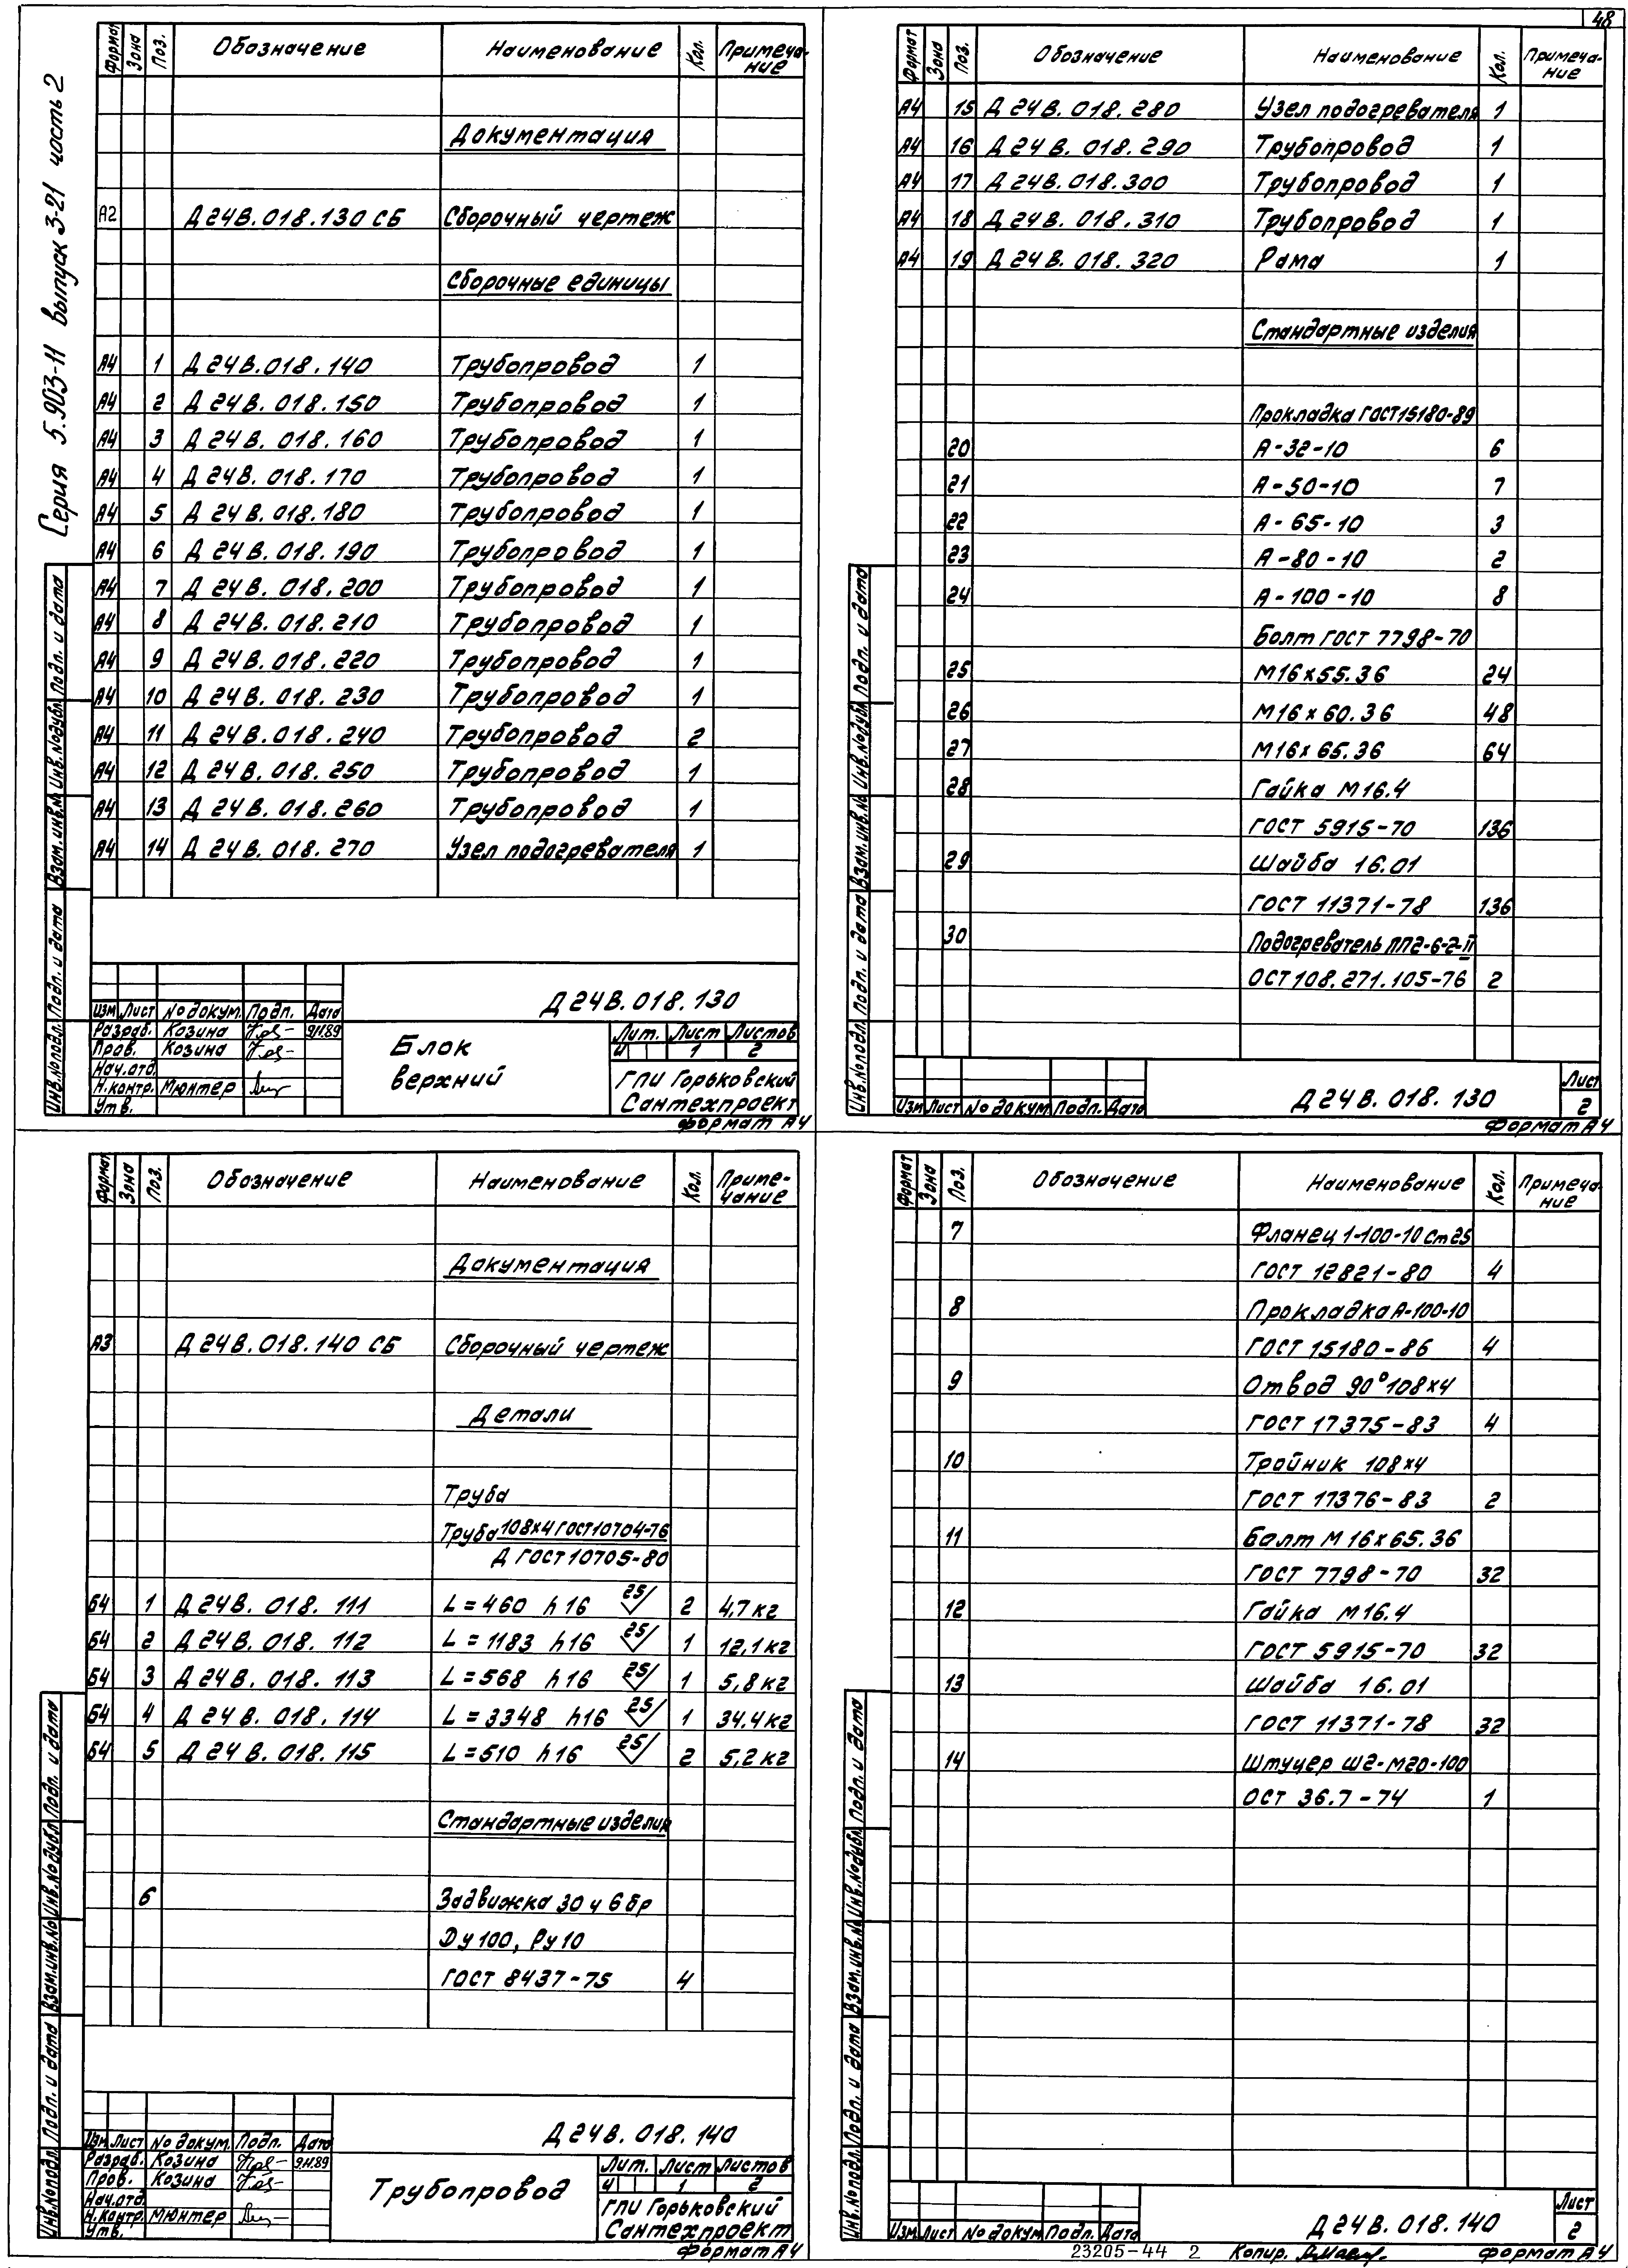 48
Серия 5.903-11 выпуск 3-21 часть 2
Формат Зона Поз. Обозначение Наименование Кол. Примеча-
ние
Документация
А2 Д24В.018.130 СБ Сборочный чертеж
Сборочные единицы
А4 1 Д24В.018.140 Трубопровод 1
А4 2 Д24В.018.150 Трубопровод 1
А4 3 Д24В.018.160 Трубопровод 1
А4 4 Д24В.018.170 Трубопровод 1
А4 5 Д24В.018.180 Трубопровод 1
А4 6 Д24В.018.190 Трубопровод 1
А4 7 Д24В.018.200 Трубопровод 1
А4 8 Д24В.018.210 Трубопровод 1
А4 9 Д24В.018.220 Трубопровод 1
А4 10 Д24В.018.230 Трубопровод 1
А4 11 Д24В.018.240 Трубопровод 2
А4 12 Д24В.018.250 Трубопровод 1
А4 13 Д24В.018.260 Трубопровод 1
А4 14 Д24В.018.270 Узел подогревателя 1
Инв.№подл. Подп. и дата Взам.инв.№ Инв.№дубл. Подп. и дата
Д24В.018.130
Изм Лист № докум. Подп. Дата
Разраб. Козина 9.11.89
Пров. Козина
Нач.отд.
Н.контр. Мюнтер
Утв.
Блок
верхний
Лит. Лист Листов
И 1 2
ГПИ Горьковский
Сантехпроект
Формат А4
Формат Зона Поз. Обозначение Наименование Кол. Примеча-
ние
А4 15 Д24В.018.280 Узел подогревателя 1
А4 16 Д24В.018.290 Трубопровод 1
А4 17 Д24В.018.300 Трубопровод 1
А4 18 Д24В.018.310 Трубопровод 1
А4 19 Д24В.018.320 Рама 1
Стандартные изделия
Прокладка ГОСТ15180-89
20 А-32-10 6
21 А-50-10 7
22 А-65-10 3
23 А-80-10 2
24 А-100-10 8
Болт ГОСТ 7798-70
25 М16х55.36 24
26 М16х60.36 48
27 М16х65.36 64
28 Гайка М16.4
ГОСТ 5915-70 136
29 Шайба 16.01
ГОСТ 11371-78 136
30 Подогреватель ПП2-6-2-II
ОСТ108.271.105-76 2
Инв.№подл. Подп. и дата Взам.инв.№ Инв.№дубл. Подп. и дата
Изм Лист № докум. Подп. Дата
Д24В.018.130
Лист
2
Формат А4
Формат Зона Поз. Обозначение Наименование Кол. Приме-
чание
Документация
А3 Д24В.018.140 СБ Сборочный чертеж
Детали
Труба
Труба 108х4 ГОСТ10704-76
Д ГОСТ10705-80
Б4 1 Д24В.018.111 L=460 h16 25/ 2 4,7кг
Б4 2 Д24В.018.112 L=1183 h16 25/ 1 12,1кг
Б4 3 Д24В.018.113 L=568 h16 25/ 1 5,8кг
Б4 4 Д24В.018.114 L=3348 h16 25/ 1 34.4кг
Б4 5 Д24В.018.115 L=510 h16 25/ 2 5,2кг
Стандартные изделия
6 Задвижка 30ч6бр
Dу100, Ру10
ГОСТ 8437-75 4
Инв.№подл. Подп. и дата Взам.инв.№ Инв.№дубл. Подп. и дата
Д24В.018.140
Изм Лист № докум. Подп. Дата
Разраб. Козина 9.11.89
Пров. Козина
Нач.отд.
Н.контр. Мюнтер
Утв.
Трубопровод
Лит. Лист Листов
И 1 2
ГПИ Горьковский
Сантехпроект
Формат А4
Формат Зона Поз. Обозначение Наименование Кол. Примеча-
ние
7 Фланец 1-100-10 Ст25
ГОСТ 12821-80 4
8 Прокладка А-100-10
ГОСТ 15180-86 4
9 Отвод 90°108х4
ГОСТ 17375-83 4
10 Тройник 108х4
ГОСТ 17376-83 2
11 Болт М16х65.36
ГОСТ 7798-70 32
12 Гайка М16.4
ГОСТ 5915-70 32
13 Шайба 16.01
ГОСТ 11371-78 32
14 Штуцер Ш2-М20-100
ОСТ 36.7-74 1
Инв.№подл. Подп. и дата Взам.инв.№ Инв.№дубл. Подп. и дата
Изм Лист № докум. Подп. Дата
Д24В.018.140
Лист
2
23205-44 2 Копир. Формат А4